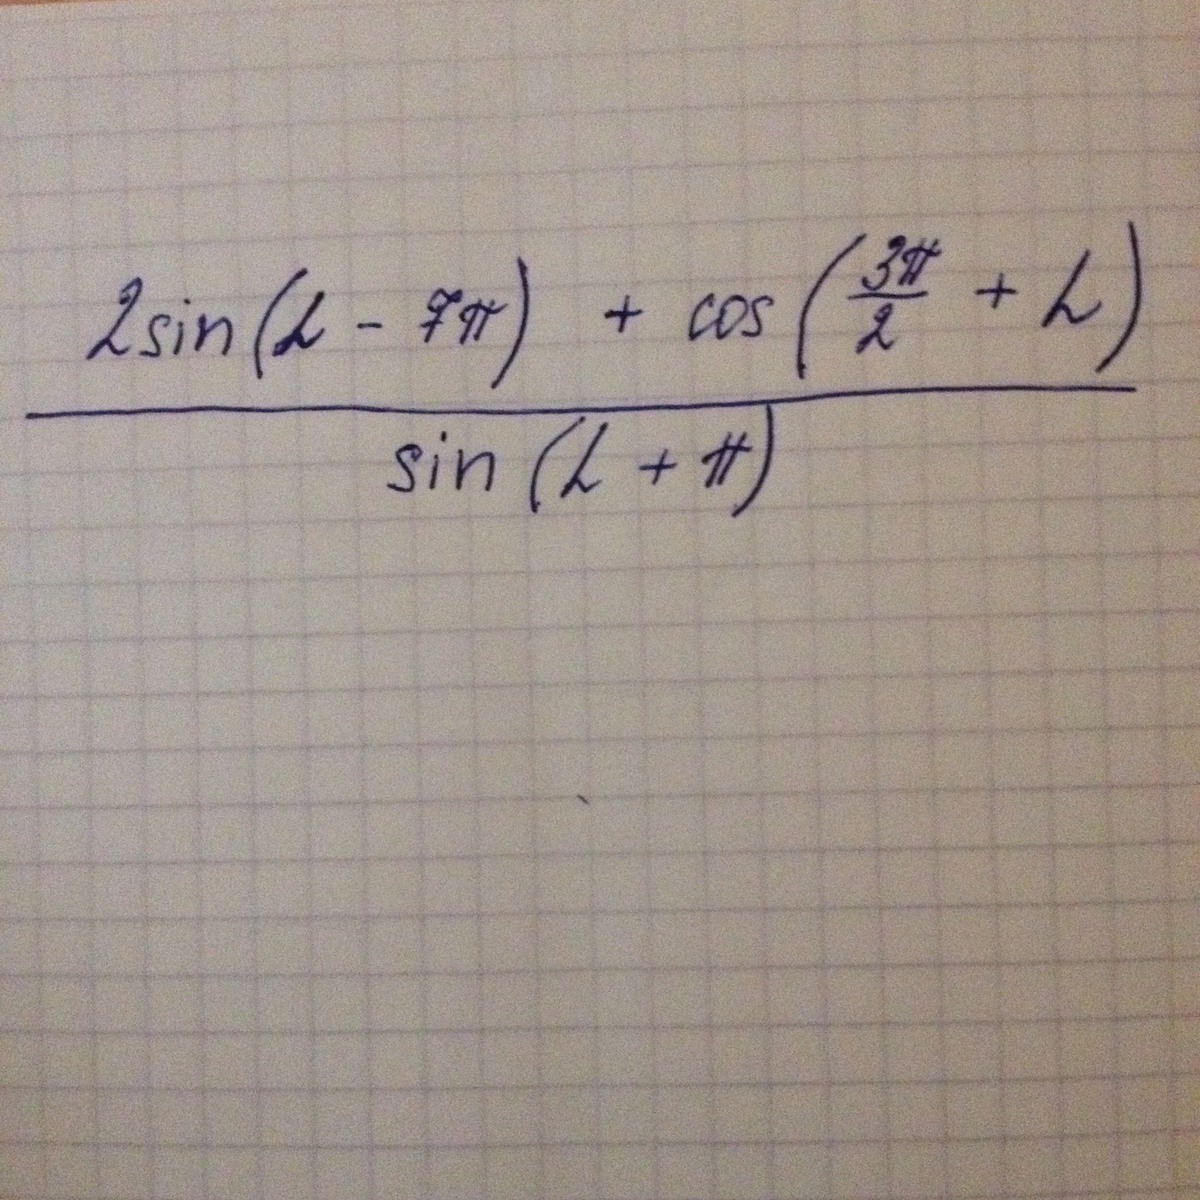 2sin(α - 7π) + cos(3π/2 + α)
sin(α + π)